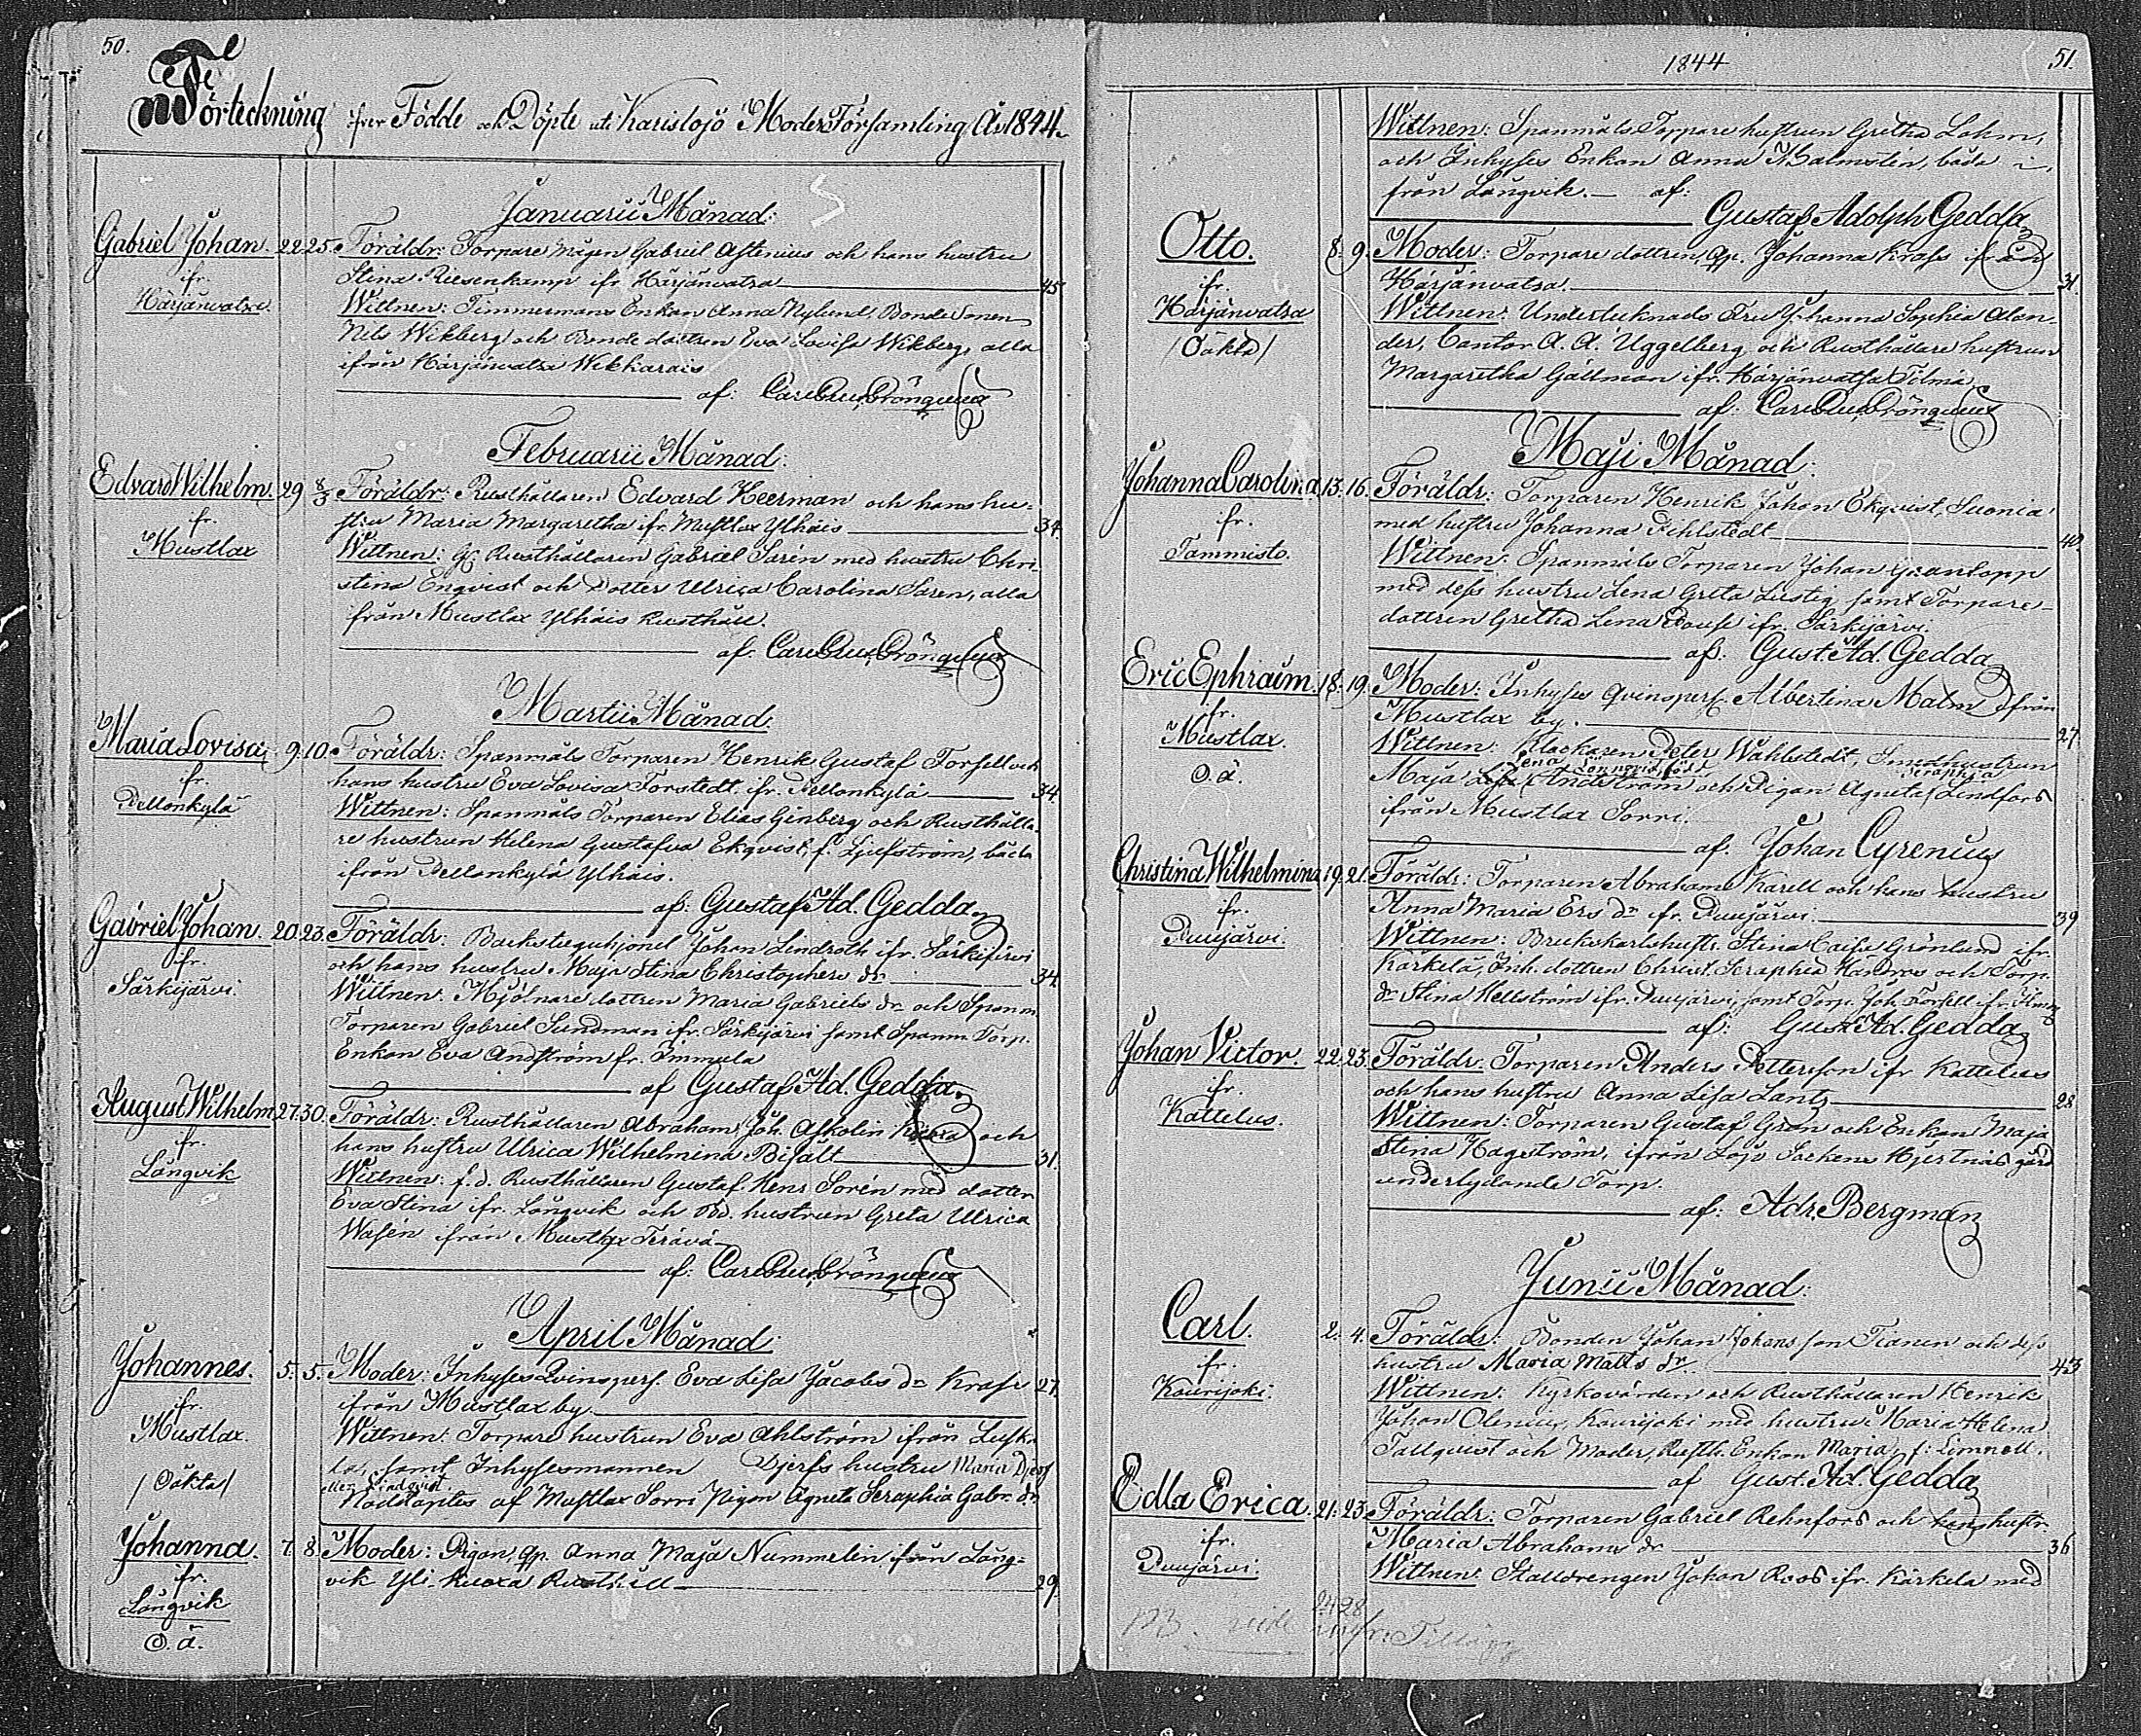 50.
Förteckning öfver Födde och Döpte uti Karislojo Moder Församling År 1844.
Januarii Månad:
Gabriel Johan. 22. 25. Föräldr: Torpare mågen Gabriel Astenius och hans hustru
ifr. Stina Riesenkamp ifr. Härjänvatsa 45
Härjänvatsa. Wittnen: Timmermans Enkan Anna Nylund, Bonde Sonen
Nils Wikberg och Bonde dottren Eva Lovisa Wikberg, alla
ifrån Härjänvatsa Wikkarais
af:
Februarii Månad:
Edvard Wilhelm. 29 8/3 Föräldr: Rusthållaren Edvard Heerman och hans hu-
fr. stru Maria Margaretha ifr. Mustlax Ylhäis 34.
Mustlax Wittnen: Rusthållaren Gabriel Sarén med hustru Chri-
stina Enqvist och Dotter Ulrica Carolina Saren, alla
från Mustlax Ylhäis Rusthåll.
af:
Martii Månad:
Maria Lovisa. 9. 10. Föräldr: Spanmåls Torparen Henrik Gustaf Forsell och
fr. hans hustru Eva Lovisa Torstedt ifr. Pellonkylä 34.
Pellonkylä Wittnen: Spanmåls Torparen Elias Ginberg och Rusthålla-
re hustrun Helena Gustafva Ekqvist, f. Ljufström, båda
ifrån Pellonkylä Ylhäis.
af: Gustaf Ad. Gedda
Gabriel Johan. 20. 23. Föräldr: Backstuguhjonet Johan Lindroth ifr. Särkijärvi
fr. och hans hustru Maja Stina Christophers dr 34.
Särkijärvi. Wittnen: Mjölnare dottren Maria Gabriels dr och Spanm.
Torparen Gabriel Sundman ifr. Särkijärvi samt Spanm. Torp.
Enkan Eva Andström fr. Immula
af Gustaf Ad. Gedda.
August Wilhelm 27. 30. Föräldr: Rusthållaren Abraham Joh. Askolin och
ifr. hans hustru Ulrica Wilhelmina Bisalt 31.
Långvik Wittnen: f.d. Rusthållaren Gustaf Henr Sorén med dotter
Eva Stina ifr. Långvik och hustrun Greta Ulrica
Wasén ifrån Mustlax Terävä
af:
April Månad:
Johannes. 5. 5. Moder: Inhyses Qvinspers. Eva Lisa Jacobs dr 27.
fr. ifrån Mustlax by.
Mustlax. Wittnen: Torpare hustrun Eva Ahlström ifrån
samt Inhysesmannen Djerfs hustru Maria Djerf
/Oäkta/ Nöddöptes af Mustlax Sorri Pigan Agneta Seraphia Gabr. dr
Johanna. 7. 8. Moder: Pigan, Qp. Anna Maja Nummelin ifrån Lång-
fr. vik Yli Rusthåll 29.
Långvik
O.ä.
1844
51.
Wittnen: Spanmåls Torpare hustrun Gretha Lohm,
och Inhyses Enkan Anna Malmstén, båda i
från Långvik. af:
Gustaf Adolph Gedda
Otto. 8. 9. Moder: Torpare dottren, Qp. Johanna Krass ifrån
ifr. Härjänvatsa. 31.
Härjänvatsa Wittnen: Undertecknads Fru Johanna Sophia Alan-
/Oäkta/ der, Cantor A. A. Uggelberg och Rusthållare hustrun
Margaretha Gällman ifr. Härjänvatsa Tilma
af:
Maji Månad:
Johanna Carolina. 13. 16. Föräldr: Torparen Henrik Johan Ekqvist, Suonia
fr. med hustru Johanna Fihlstedt 40.
Tammisto. Wittnen: Spanmåls Torparen Johan Grantopp
med dess hustru Lena Greta Lustig samt Torpare-
dottren Gretha Lena ifr. Särkijärvi.
af: Gust. Ad. Gedda
Eric Ephraim. 18. 19. Moder: Inhyses Qvinspers. Albertina Malm ifrån
fr. Mustlax by. 27.
Mustlax. Wittnen: Klockaren Peter Wahlstedt, Smedhustrun
O.ä. Maja Lena Andström och Pigan Agneta Seraphia Lindfors
ifrån Mustlax Sorri.
af. Johan Cyrenius
Christina Wilhelmina 19. 21. Föräldr: Torparen Abraham Karell och hans hustru
fr. Anna Maria Ers dr ifr. Puujärvi. 39
Puujärvi. Wittnen: Brukskarlshustr. Stina Caisa Grönlund ifr.
Kärkelä, Inh. dottren Christ. Seraphia och Torp.
dr Stina Hellström ifr. Puujärvi, samt Torp. Joh. Forsell ifr.
af: Gust. Ad. Gedda
Johan Victor. 22. 23. Föräldr: Torparen Anders Petterson ifr Kattelus
ifr. och hans hustru Anna Lisa Lantz 28
Kattelus. Wittnen: Torparen Gustaf Grön och Enkan Maja
Stina Hagström, ifrån Lojo Sockens Hjertnäs gård
underlydande Torp.
af: Adr. Bergman
Junii Månad:
Carl. 2. 4. Föräldr: Bonden Johan Johansson Tianen och dess
fr. hustru Maria Matts dr 43
Kourijoki. Wittnen: Kyrkovärden och Rusthållaren Henrik
Johan Olenius, Kourijoki med hustru Maria Helena
Tallquist och Moder, Rusth. Enkan Maria, f: Limnell.
af Gust. Ad. Gedda
Edla Erica. 21. 23. Föräldr: Torparen Gabriel Rehnfors och hans hustr.
ifr. Maria Abrahams dr 36
Puujärvi. Wittnen: Stalldrengen Johan Roos ifr. Kärkela med